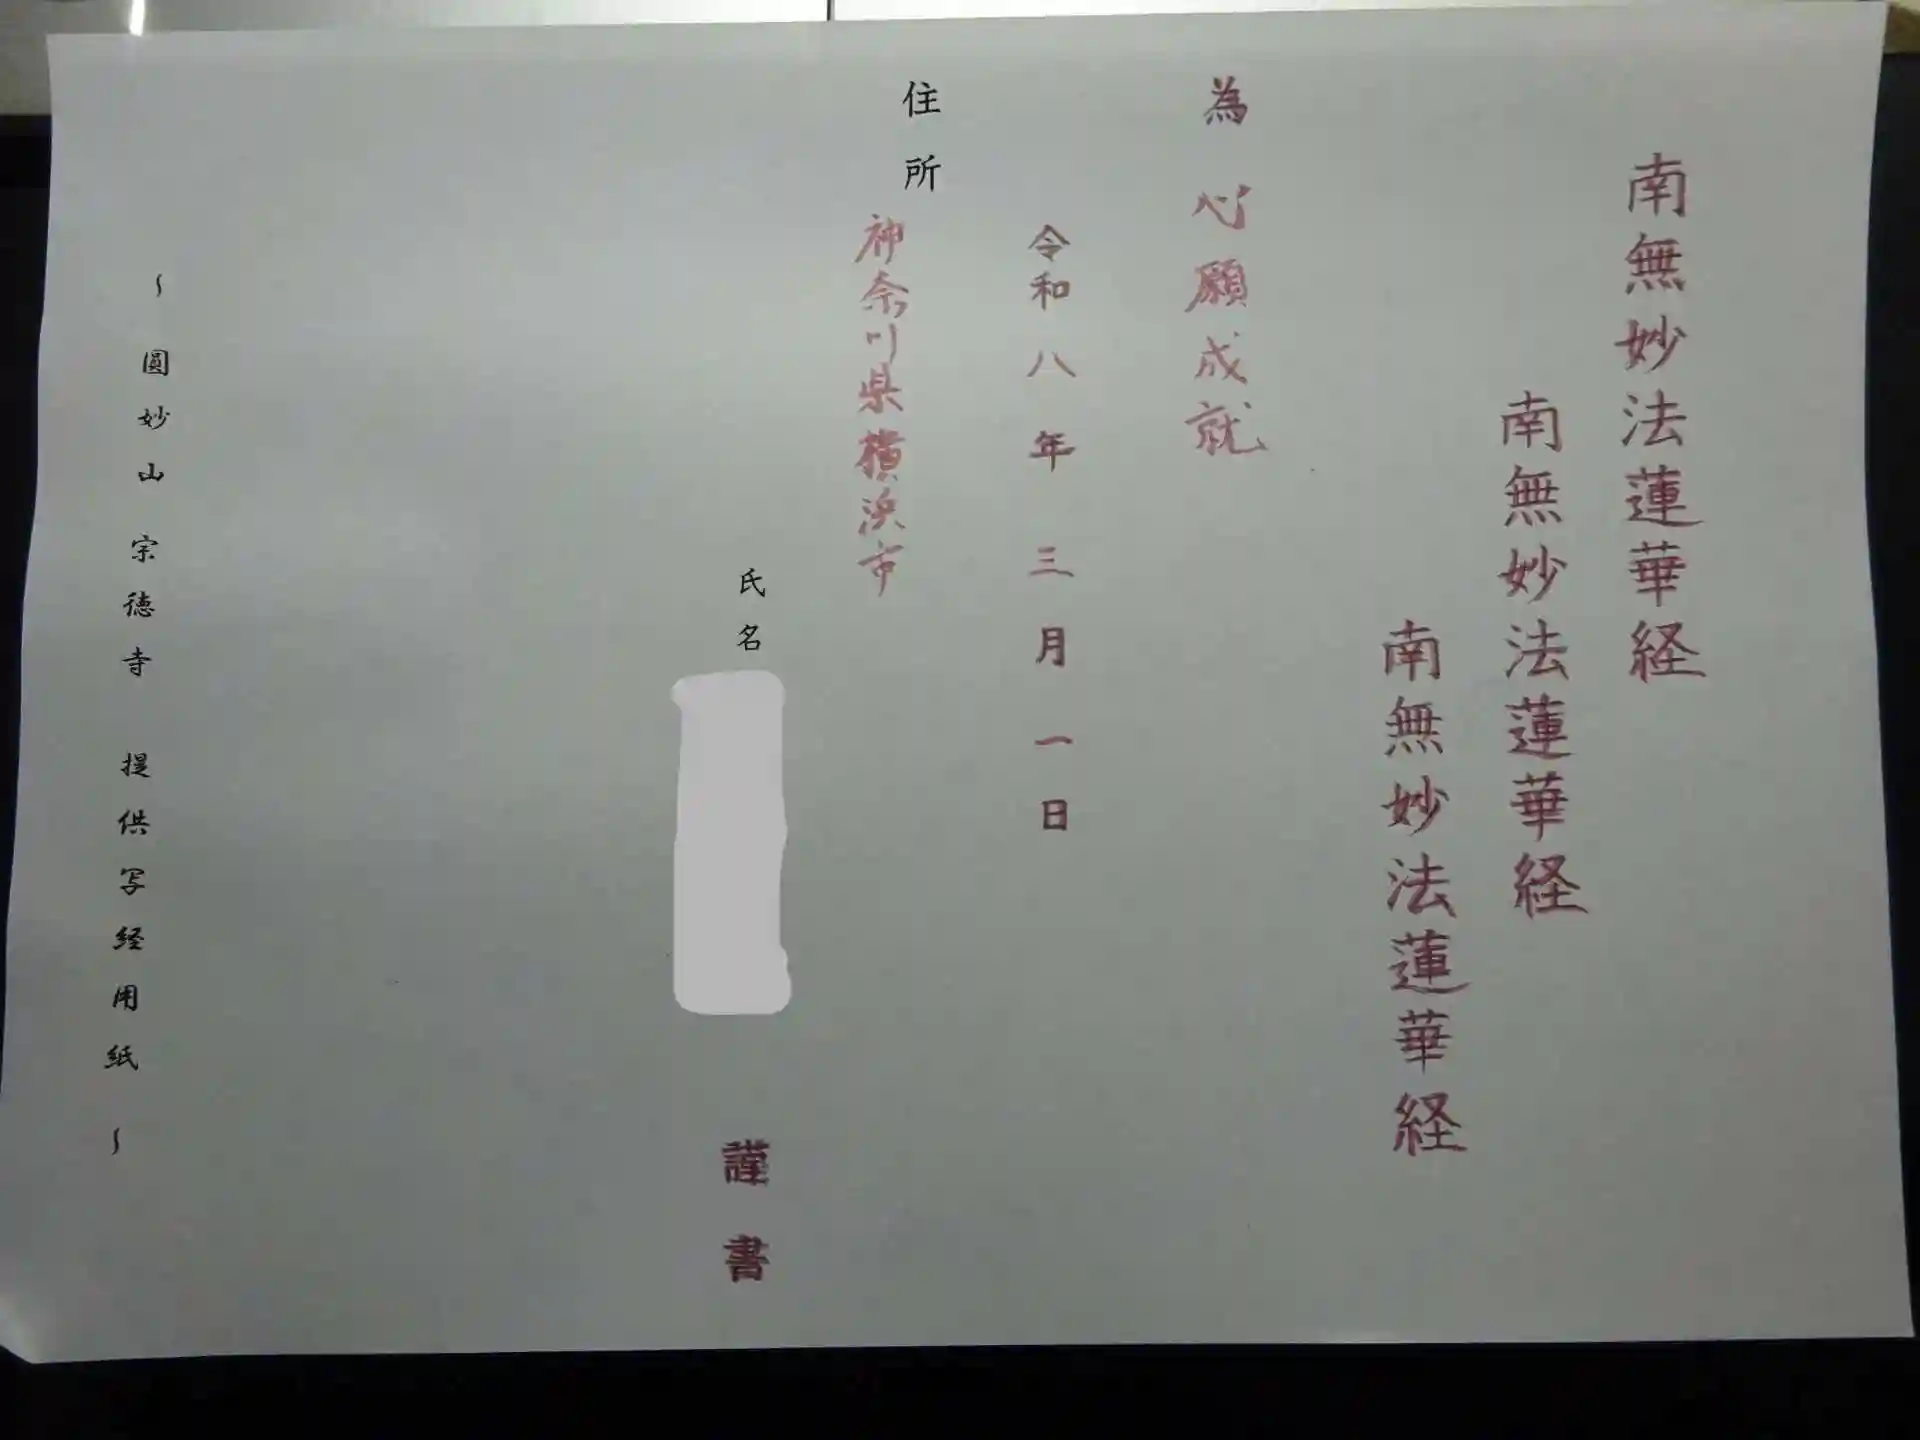 南無妙法蓮華経
南無妙法蓮華経
南無妙法蓮華経
為 心願成就
令和八年 三月一日
住所 神奈川県横浜市
氏名 謹書
~圓妙山 宗徳寺 提供写経用紙~